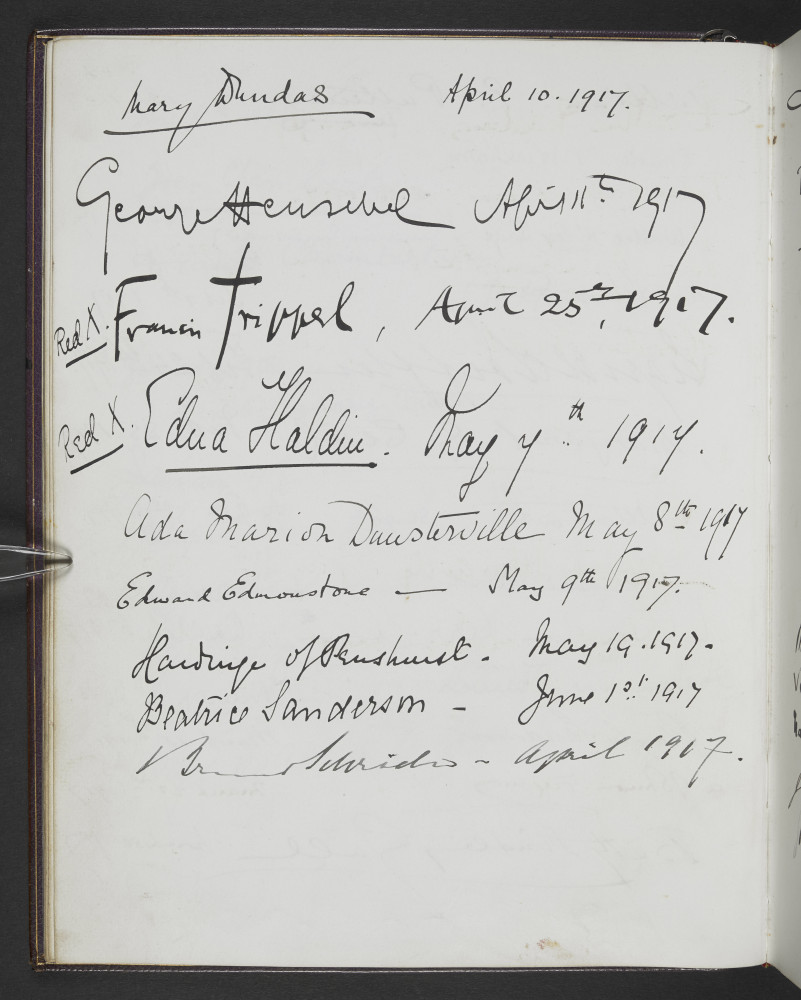 Mary Dundas April 10. 1917.
George Henschel April 11th 1917
Red X. Francis Trippel, April 25th, 1917.
Red X. Edna Haldin. May 7th 1917.
Ada Marion Dunsterville May 8th 1917
Edward Edmonstone — May 9th 1917.
Hardinge of Penshurst. May 19. 1917.
Beatrice Sanderson - June 1st 1917
Bruno Schröder - April 1917.